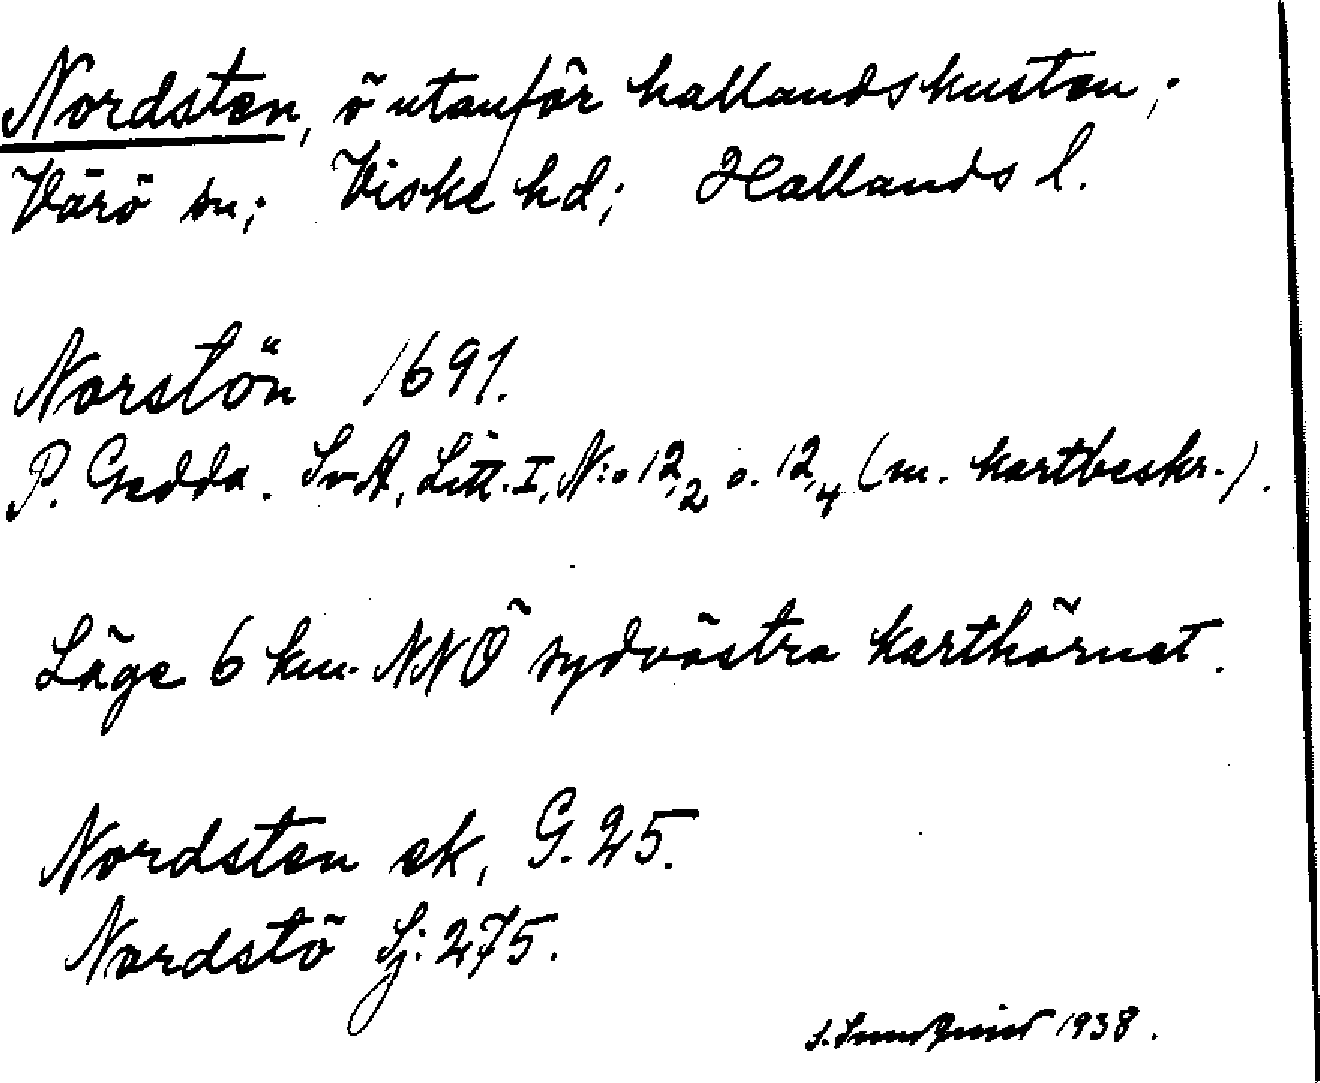 Nordsten, ö utanför hallandskusten;
Värö sn; Viske hd; Hallands l.
Norstön 1691.
P. Gedda. SvA, Litt. I, N:o 12,2 o. 12,4 (m. kartbeskr.).
Läge 6 km. NNÖ sydvästra karthörnet.
Nordsten ek, G. 25.
Nordstö Sj: 275.
S. Lundquist 1938.